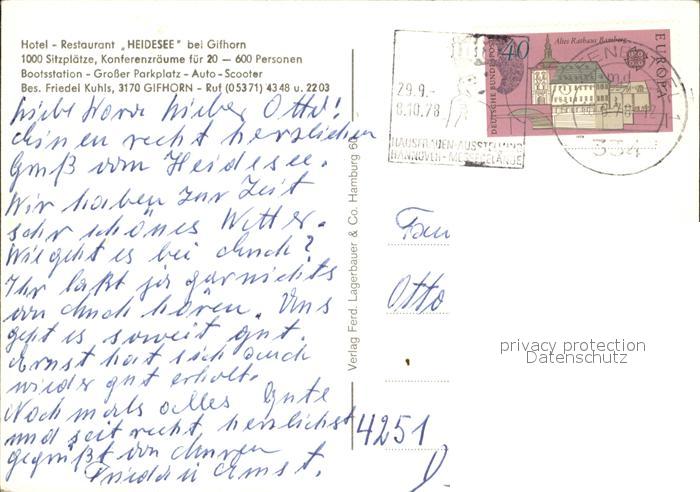 Hotel - Restaurant „HEIDESEE" bei Gifhorn
1000 Sitzplätze, Konferenzräume für 20 — 600 Personen
Bootsstation - Großer Parkplatz - Auto - Scooter
Bes. Friedel Kuhls, 3170 GIFHORN - Ruf (05371) 4348 u. 2203
Liebe lieber Otto!
Einen recht herzlichen
Gruß vom Heidesee.
Wir haben zur Zeit
sehr schönes Wetter.
Wie geht es bei Euch?
Ihr laßt ja garnichts
von Euch hören. Uns
geht es soweit gut.
Ernst hat sich auch
wieder gut erholt.
Nochmals alles Gute
und seit recht herzlichst
gegrüßt von Euren
Frieda u. Ernst.
Verlag Ferd. Lagerbauer & Co. Hamburg 60
29.9.-
8.10.78
HAUSFRAUEN-AUSSTELLUNG
HANNOVER-MESSEGELÄNDE
DEUTSCHE BUNDESPOST
40
Altes Rathaus Bamberg
EUROPA
334
Fam
Otto
4251
privacy protection
Datenschutz